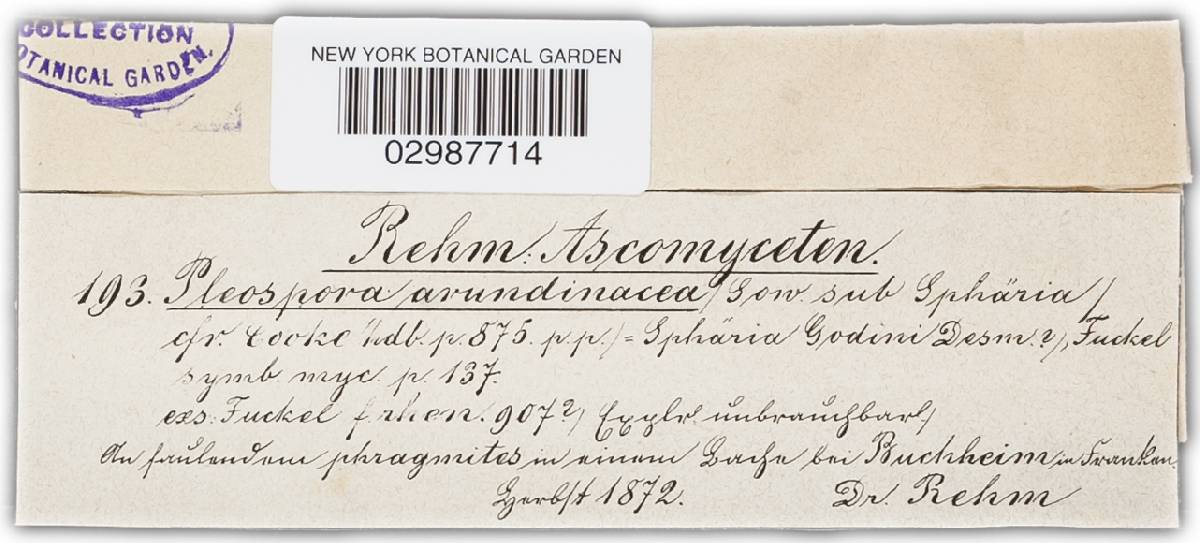 COLLECTION
BOTANICAL GARDEN.
NEW YORK BOTANICAL GARDEN
02987714
Rehm: Ascomyceten.
193. Pleospora arundinacea (Sow. sub Sphäria)
cfr. Cooke hdb. p. 875. p.p.) = Sphäria Godini Desm.?), Fuckel
symb. myc. p. 137.
exs. Fuckel f. rhen. 907?) Explr. unbrauchbar!)
An faulendem phragmites in einem Bache bei Buchheim in Franken.
Herbst 1872. Dr. Rehm